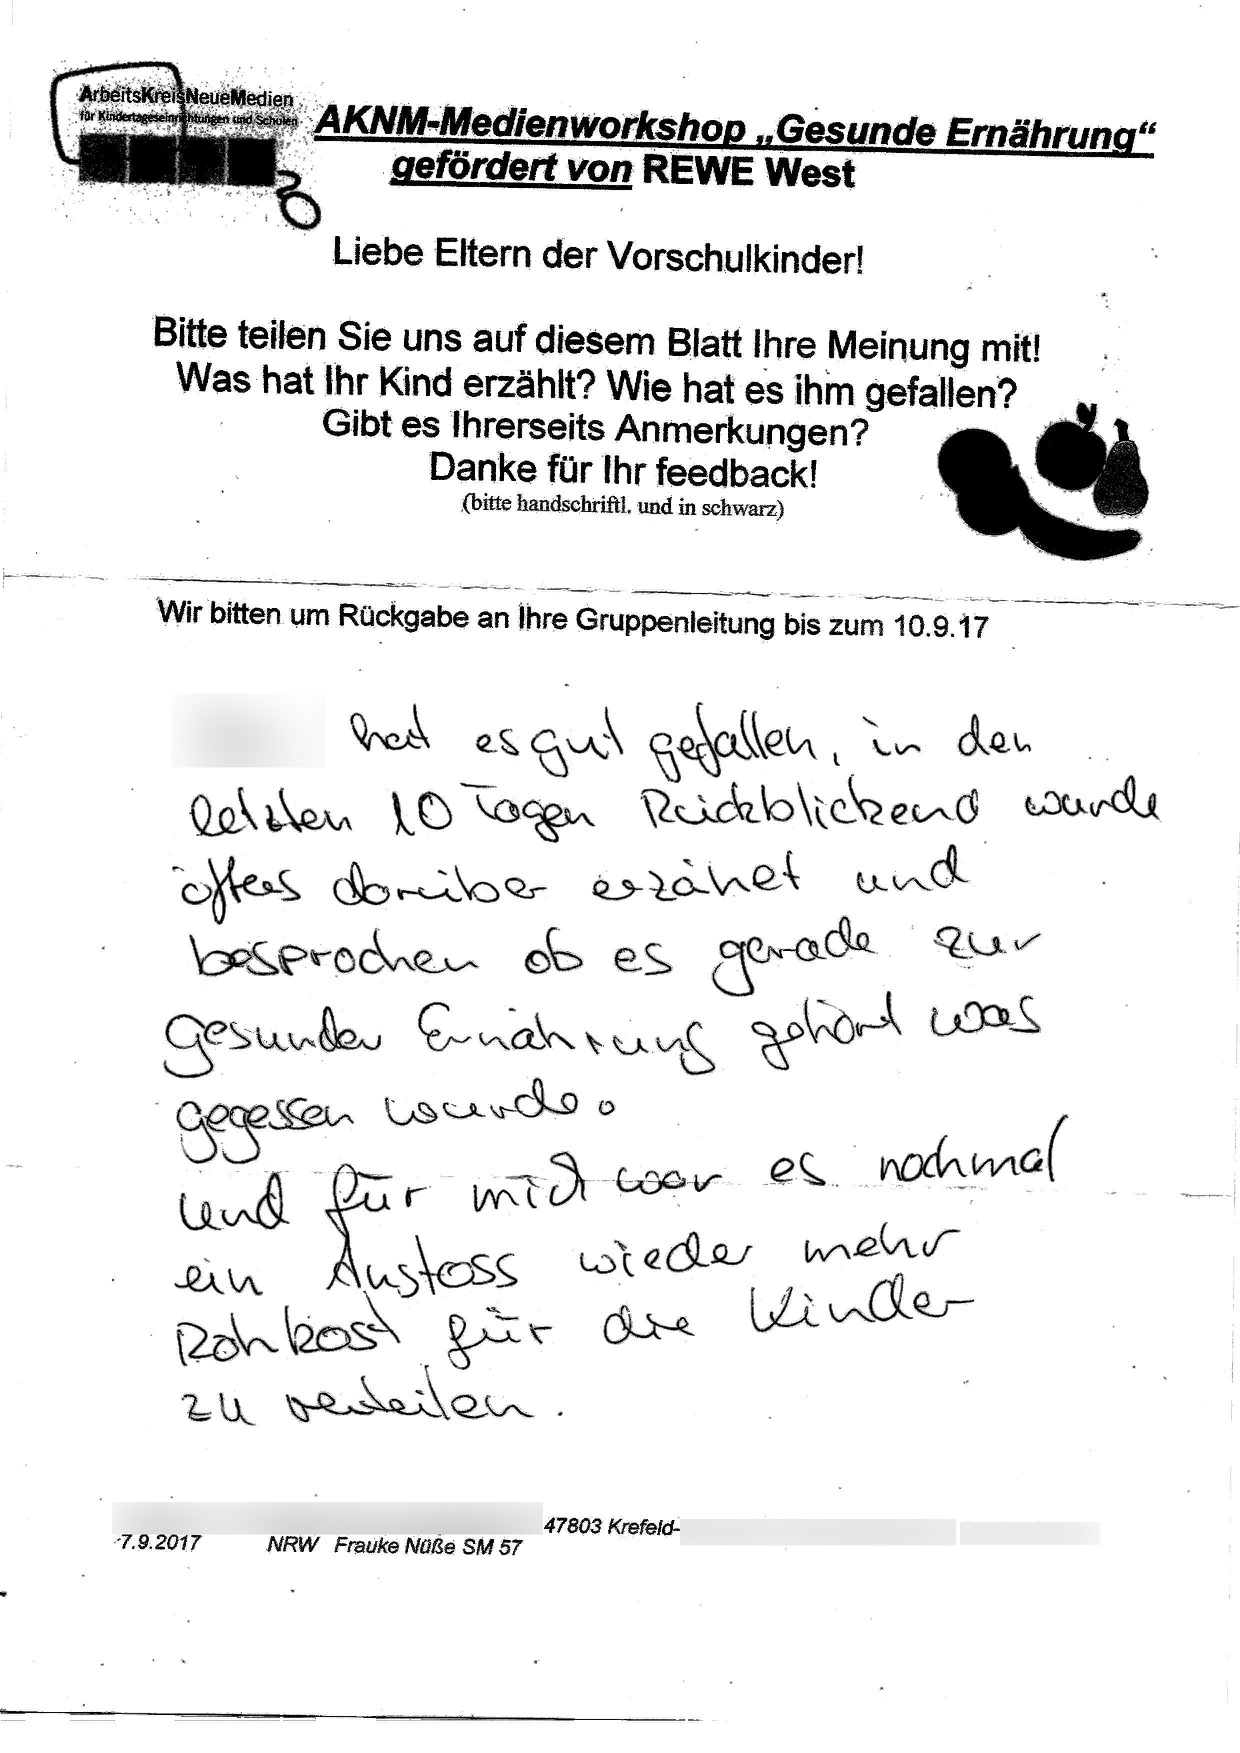 ArbeitsKreisNeueMedien
für Kindertageseinrichtungen und Schulen
AKNM-Medienworkshop „Gesunde Ernährung“
gefördert von REWE West
Liebe Eltern der Vorschulkinder!
Bitte teilen Sie uns auf diesem Blatt Ihre Meinung mit!
Was hat Ihr Kind erzählt? Wie hat es ihm gefallen?
Gibt es Ihrerseits Anmerkungen?
Danke für Ihr feedback!
(bitte handschriftl. und in schwarz)
Wir bitten um Rückgabe an Ihre Gruppenleitung bis zum 10.9.17
hat es gut gefallen, in den
letzten 10 Tagen Rückblickend wurde
öfters darüber erzählt und
besprochen ob es gerade zur
gesunden Ernährung gehört was
gegessen wurde.
Und für mich war es nochmal
ein Anstoss wieder mehr
Rohkost für die Kinder
zu verteilen.
47803 Krefeld-
7.9.2017 NRW Frauke Nüße SM 57